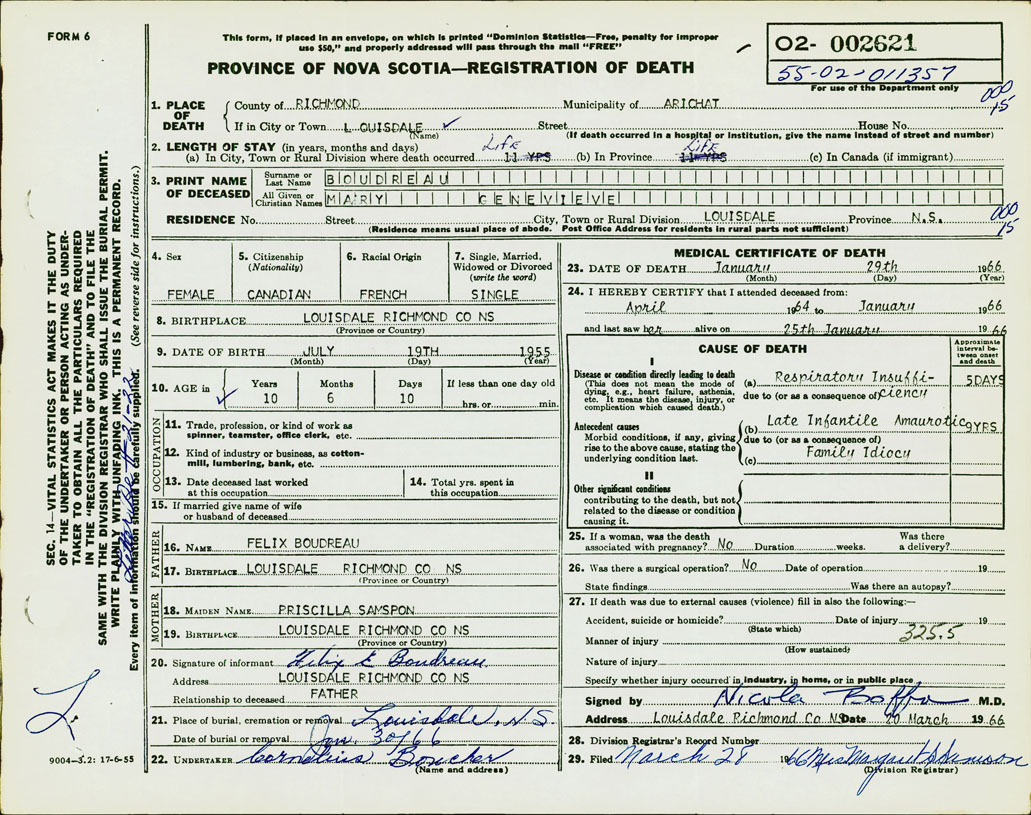 FORM 6
This form, if placed in an envelope, on which is printed "Dominion Statistics—Free, penalty for improper
use $50," and properly addressed will pass through the mail "FREE"
PROVINCE OF NOVA SCOTIA—REGISTRATION OF DEATH
02- 002621
55-02-011357
For use of the Department only
SEC. 14—VITAL STATISTICS ACT MAKES IT THE DUTY
OF THE UNDERTAKER OR PERSON ACTING AS UNDER-
TAKER TO OBTAIN ALL THE PARTICULARS REQUIRED
IN THE "REGISTRATION OF DEATH" AND TO FILE THE
SAME WITH THE DIVISION REGISTRAR WHO SHALL ISSUE THE BURIAL PERMIT.
WRITE PLAINLY WITH UNFADING INK. THIS IS A PERMANENT RECORD.
Every item of information should be carefully supplied. (See reverse side for instructions.)
1. PLACE OF DEATH
County of RICHMOND Municipality of ARICHAT
000
15
If in City or Town LOUISDALE Street House No.
(Name) (If death occurred in a hospital or institution, give the name instead of street and number)
2. LENGTH OF STAY (in years, months and days) Life Life
(a) In City, Town or Rural Division where death occurred 11 YRS (b) In Province 11 YRS (c) In Canada (if immigrant)
3. PRINT NAME OF DECEASED
Surname or Last Name BOUDREAU
All Given or Christian Names MARY GENEVIEVE
RESIDENCE No. Street City, Town or Rural Division LOUISDALE Province N.S.
000
15
(Residence means usual place of abode. Post Office Address for residents in rural parts not sufficient)
4. Sex
FEMALE
5. Citizenship
(Nationality)
CANADIAN
6. Racial Origin
FRENCH
7. Single, Married,
Widowed or Divorced
(write the word)
SINGLE
8. BIRTHPLACE LOUISDALE RICHMOND CO NS
(Province or Country)
9. DATE OF BIRTH JULY 19TH 1955
(Month) (Day) (Year)
10. AGE in Years Months Days If less than one day old
10 6 10 hrs. or min.
OCCUPATION
11. Trade, profession, or kind of work as
spinner, teamster, office clerk, etc.
12. Kind of industry or business, as cotton-
mill, lumbering, bank, etc.
13. Date deceased last worked
at this occupation
14. Total yrs. spent in
this occupation
15. If married give name of wife
or husband of deceased
FATHER
16. NAME FELIX BOUDREAU
17. BIRTHPLACE LOUISDALE RICHMOND CO NS
(Province or Country)
MOTHER
18. MAIDEN NAME PRISCILLA SAMSPON
19. BIRTHPLACE LOUISDALE RICHMOND CO NS
(Province or Country)
20. Signature of informant Felix E Boudreau
Address LOUISDALE RICHMOND CO NS
Relationship to deceased FATHER
21. Place of burial, cremation or removal Louisdale, N.S.
Date of burial or removal Jan. 30/66
22. UNDERTAKER Cornelius Boucher
(Name and address)
9004—3.2: 17-6-55
MEDICAL CERTIFICATE OF DEATH
23. DATE OF DEATH January 29th 1966
(Month) (Day) (Year)
24. I HEREBY CERTIFY that I attended deceased from:
April 1964 to January 1966
and last saw her alive on 25th January 1966
CAUSE OF DEATH
Approximate
interval be-
tween onset
and death
I
Disease or condition directly leading to death
(This does not mean the mode of
dying, e.g., heart failure, asthenia,
etc. It means the disease, injury, or
complication which caused death.)
(a) Respiratory Insuffi- 5DAYS
due to (or as a consequence of) ciency
Antecedent causes
Morbid conditions, if any, giving
rise to the above cause, stating the
underlying condition last.
(b) Late Infantile Amaurotic 9YRS
due to (or as a consequence of)
(c) Family Idiocy
II
Other significant conditions
contributing to the death, but not
related to the disease or condition
causing it.
25. If a woman, was the death
associated with pregnancy? No Duration weeks. Was there
a delivery?
26. Was there a surgical operation? No Date of operation 19
State findings Was there an autopsy?
27. If death was due to external causes (violence) fill in also the following:—
Accident, suicide or homicide? Date of injury 19
(State which)
325.5
Manner of injury
(How sustained)
Nature of injury
Specify whether injury occurred in industry, in home, or in public place
Signed by Nicola Boffo M.D.
Address Louisdale Richmond Co. NS Date 20 March 1966
28. Division Registrar's Record Number
29. Filed March 28 1966 Mrs Margaret Samson
(Division Registrar)